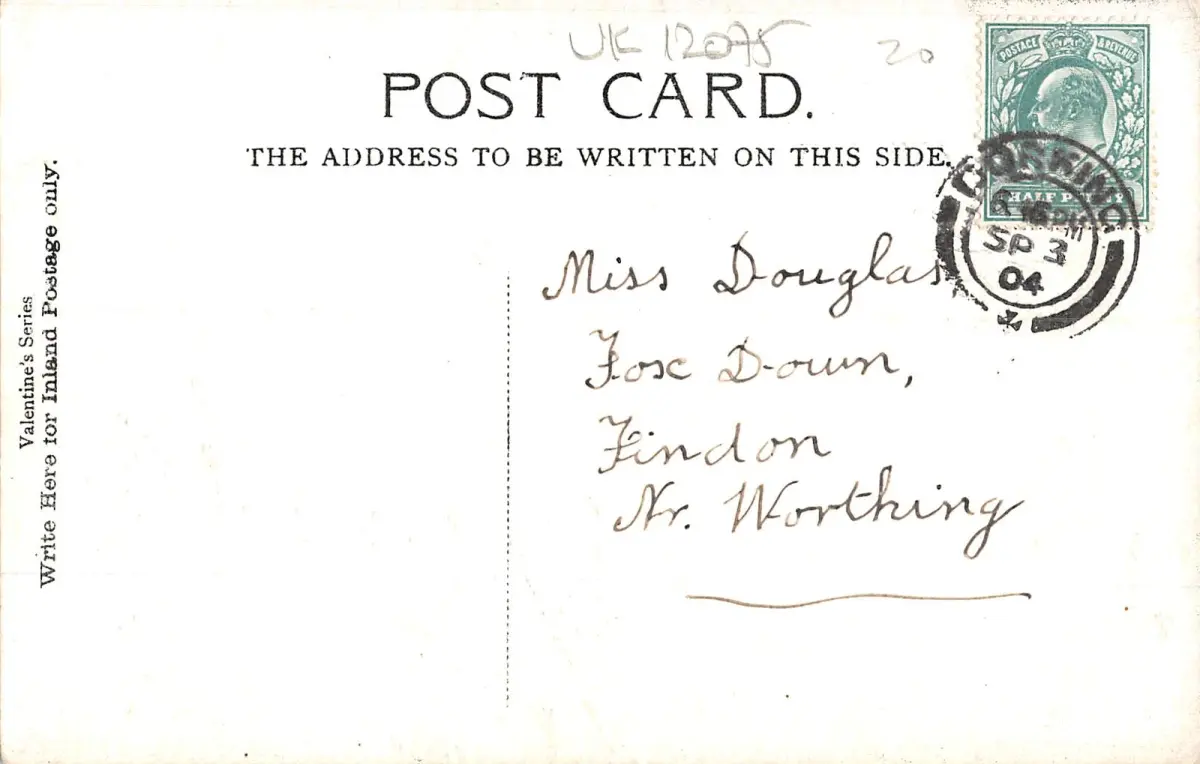 UK 12075 20
POST CARD.
THE ADDRESS TO BE WRITTEN ON THIS SIDE.
POSTAGE & REVENUE
HALF PENNY
DORKING
6 15 PM
SP 3
04
Valentine's Series
Write Here for Inland Postage only.
Miss Douglas
Fox Down,
Findon
Nr. Worthing